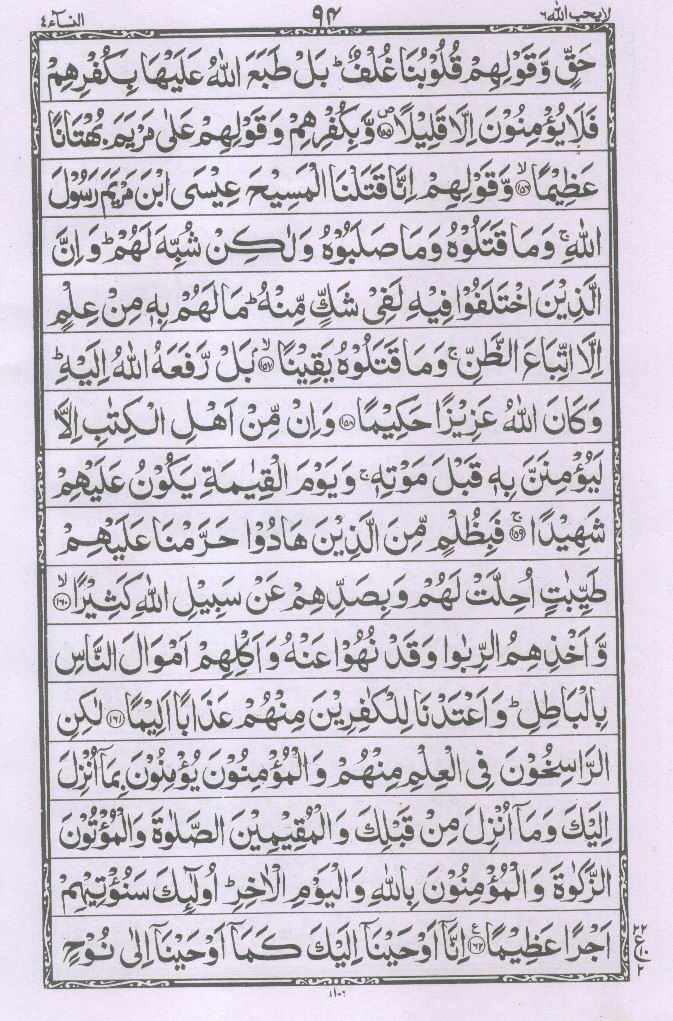 لا يحب الله ٦ ٩٤ النساء ٤
حَقٍّ وَّقَوْلِهِمْ قُلُوْبُنَا غُلْفٌ ؕ بَلْ طَبَعَ اللّٰهُ عَلَيْهَا بِكُفْرِهِمْ
فَلَا يُؤْمِنُوْنَ اِلَّا قَلِيْلًا ۪﴿۱۵۵﴾ وَّبِكُفْرِهِمْ وَقَوْلِهِمْ عَلٰى مَرْيَمَ بُهْتَانًا
عَظِيْمًا ۙ﴿۱۵۶﴾ وَّقَوْلِهِمْ اِنَّا قَتَلْنَا الْمَسِيْحَ عِيْسَى ابْنَ مَرْيَمَ رَسُوْلَ
اللّٰهِ ۚ وَمَا قَتَلُوْهُ وَمَا صَلَبُوْهُ وَلٰكِنْ شُبِّهَ لَهُمْ ؕ وَاِنَّ
الَّذِيْنَ اخْتَلَفُوْا فِيْهِ لَفِيْ شَكٍّ مِّنْهُ ؕ مَا لَهُمْ بِهٖ مِنْ عِلْمٍ
اِلَّا اتِّبَاعَ الظَّنِّ ۚ وَمَا قَتَلُوْهُ يَقِيْنًا ۙ﴿۱۵۷﴾ بَلْ رَّفَعَهُ اللّٰهُ اِلَيْهِ ؕ
وَكَانَ اللّٰهُ عَزِيْزًا حَكِيْمًا ﴿۱۵۸﴾ وَاِنْ مِّنْ اَهْلِ الْكِتٰبِ اِلَّا
لَيُؤْمِنَنَّ بِهٖ قَبْلَ مَوْتِهٖ ۚ وَيَوْمَ الْقِيٰمَةِ يَكُوْنُ عَلَيْهِمْ
شَهِيْدًا ۚ﴿۱۵۹﴾ فَبِظُلْمٍ مِّنَ الَّذِيْنَ هَادُوْا حَرَّمْنَا عَلَيْهِمْ
طَيِّبٰتٍ اُحِلَّتْ لَهُمْ وَبِصَدِّهِمْ عَنْ سَبِيْلِ اللّٰهِ كَثِيْرًا ۙ﴿۱۶۰﴾
وَّاَخْذِهِمُ الرِّبٰوا وَقَدْ نُهُوْا عَنْهُ وَاَكْلِهِمْ اَمْوَالَ النَّاسِ
بِالْبَاطِلِ ؕ وَاَعْتَدْنَا لِلْكٰفِرِيْنَ مِنْهُمْ عَذَابًا اَلِيْمًا ﴿۱۶۱﴾ لٰكِنِ
الرّٰسِخُوْنَ فِي الْعِلْمِ مِنْهُمْ وَالْمُؤْمِنُوْنَ يُؤْمِنُوْنَ بِمَاۤ اُنْزِلَ
اِلَيْكَ وَمَاۤ اُنْزِلَ مِنْ قَبْلِكَ وَالْمُقِيْمِيْنَ الصَّلٰوةَ وَالْمُؤْتُوْنَ
الزَّكٰوةَ وَالْمُؤْمِنُوْنَ بِاللّٰهِ وَالْيَوْمِ الْاٰخِرِ ؕ اُولٰٓئِكَ سَنُؤْتِيْهِمْ
اَجْرًا عَظِيْمًا ﴿۱۶۲﴾ ع اِنَّاۤ اَوْحَيْنَاۤ اِلَيْكَ كَمَاۤ اَوْحَيْنَاۤ اِلٰى نُوْحٍ
٢٢
ع ١٠
٢